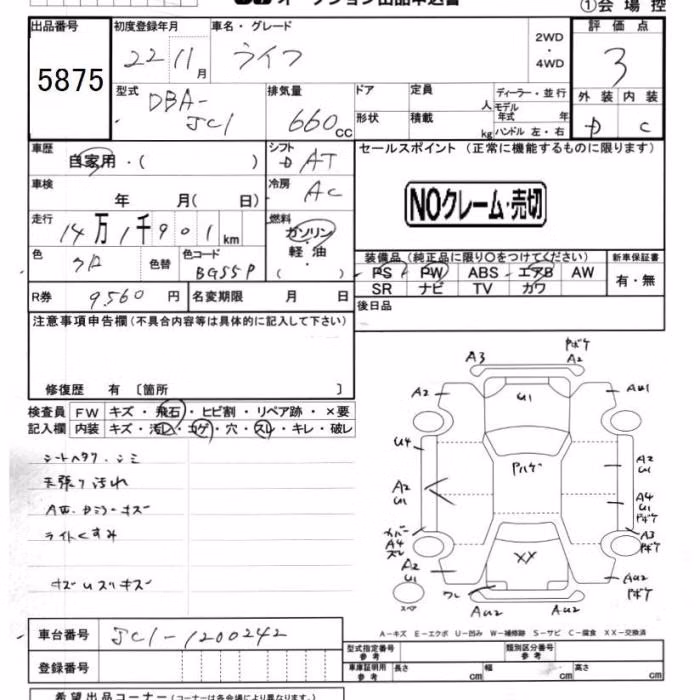 オークション出品申込書
①会場控
出品番号 初度登録年月 車名・グレード 評価点
5875 22 11 月 ライフ 2WD ・ 4WD 3
型式 排気量 ドア 定員 人 ディーラー・並行 外装 内装
DBA-JC1 660 CC 形状 積載 kg モデル年式 年 D C
ハンドル 左・右
車歴 自家用・( ) シフト D AT セールスポイント (正常に機能するものに限ります)
車検 年 月( 日) 冷房 AC
NOクレーム・売切
走行 14万1千901km 燃料 ガソリン・軽油・( )
色 クロ 色替 色コード BG55P
装備品(純正品に限り○をつけてください) 新車保証書
PS PW ABS エアB AW 有・無
SR ナビ TV カワ
R券 9,560 円 名変期限 月 日
後日品
注意事項申告欄(不具合内容等は具体的に記入して下さい)
修復歴 有 〔箇所 〕
検査員 FW キズ・飛石・ヒビ割・リペア跡・×要
記入欄 内装 キズ・汚レ・コゲ・穴・スレ・キレ・破レ
シートヘタリ・シミ
天張り汚れ
AW・ドアミラーキズ
ライトくすみ
A3 Pボケ A2
A2 U1 AU1
U4 Pハゲ A2 U1
A2 U1 A4 U1 Pボケ
カバー A4 スレ A3 Pボケ
A2 U1 XX AU2 Pボケ
スペア ワレ AU2 AU2
A-キズ E-エクボ U-凹み W-補修跡 S-サビ C-腐食 XX-交換済
車台番号 JC1-1200242
型式指定番号 参考 類別区分番号 参考
登録番号
車庫証明用 参考 長さ cm 幅 cm 高さ cm
希望出品コーナー(コーナーは各会場により異なります)